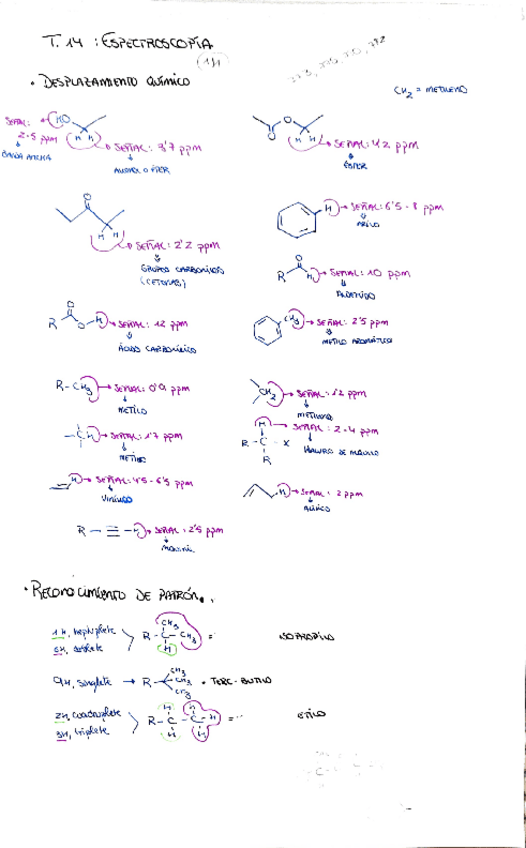 T. 14 : ESPECTROSCOPÍA
(1H)
• DESPLAZAMIENTO QUÍMICO
CH2 = METILENO
SEÑAL:
2-5 ppm
BANDA ANCHA
HO
H H
SEÑAL: 3'7 ppm
ALCOHOL O ÉTER
O
O
H H
SEÑAL: 4'2 ppm
ÉSTER
O
H H
SEÑAL: 2'2 ppm
GRUPOS CARBONILOS
(CETONAS)
H
SEÑAL: 6'5 - 8 ppm
ARILO
R
O
H
SEÑAL: 10 ppm
ALDEHÍDO
R
O
O
H
SEÑAL: 12 ppm
ÁCIDO CARBOXÍLICO
CH3
SEÑAL: 2'5 ppm
METILO AROMÁTICO
R-CH3
SEÑAL: 0'9 ppm
METILO
CH2
SEÑAL: 1'2 ppm
METILENO
-C-H
SEÑAL: 1'7 ppm
H
R - C - X
R
SEÑAL: 2-4 ppm
HALURO DE ALQUILO
H
SEÑAL: 4'5 - 6'5 ppm
VINÍLICO
H
SEÑAL: 2 ppm
ALÍLICO
R - ≡ - H
SEÑAL: 2'5 ppm
• RECONOCIMIENTO DE PATRÓN..
1H, heptuplete
6H, doblete
R - C - CH3
CH3
H
=
ISOPROPILO
9H, singlete → R
CH3
CH3
CH3
TERC-BUTILO
2H, cuadruplete
3H, triplete
H H
R - C - C - H
H H
=
ETILO